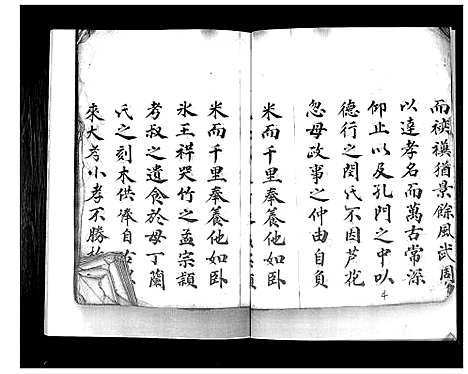 而禎祺猶景餘風武周
以達孝名而萬古常深
仰止以及孔門之中以
德行之閔氏不因芦花
忽母政事之仲由自負
米而千里奉養他如卧
米而千里奉養他如卧
氷王祥哭竹之孟宗頴
考叔之遺食於母丁蘭
氏之刻木供俸自古
來大孝小孝不勝
4